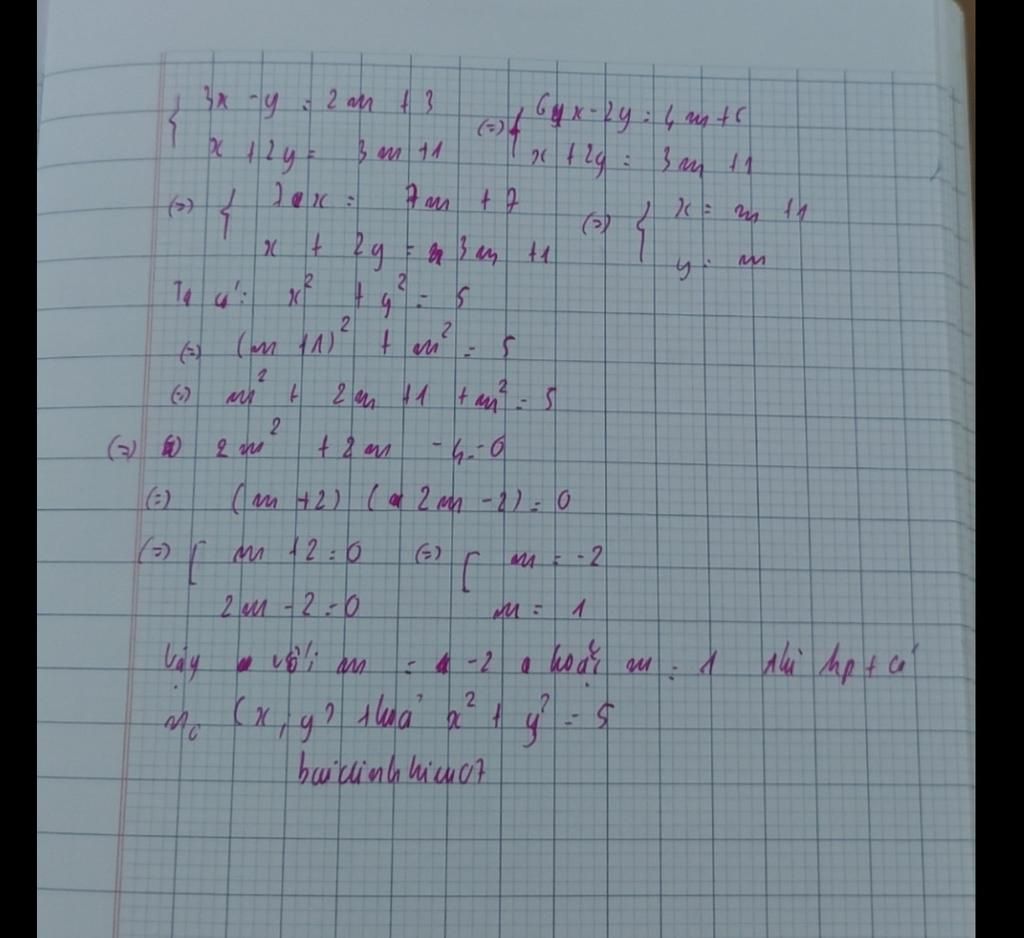 { 3x - y = 2m + 3 (=) { 6x - 2y = 4m + 6
x + 2y = 3m + 1 x + 2y = 3m + 1
(=) { 7x = 7m + 7 (=) { x = m + 1
x + 2y = 3m + 1 y = m
Ta có: x² + y² = 5
(=) (m + 1)² + m² = 5
(=) m² + 2m + 1 + m² = 5
(=) 2m² + 2m - 4 = 0
(=) (m + 2) (2m - 2) = 0
(=) [ m + 2 = 0 (=) [ m = -2
2m - 2 = 0 m = 1
Vậy với m = -2 hoặc m = 1 thì hpt có
(x, y) thoả x² + y² = 5